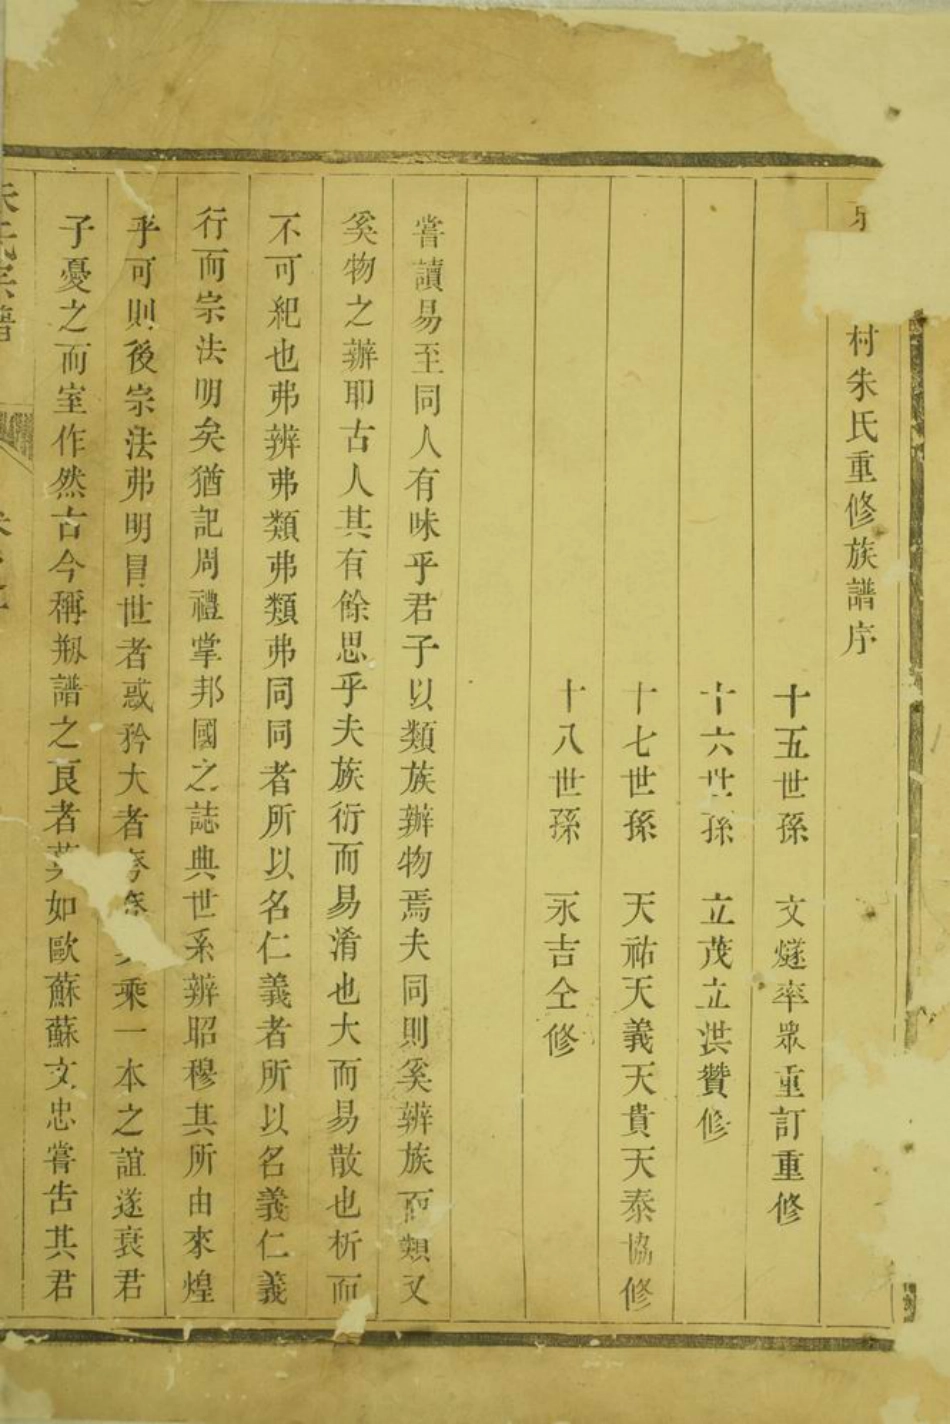 村朱氏重修族譜序
十五世孫 文燧率衆重訂重修
十六世孫 立茂立洪贊修
十七世孫 天祐天義天貴天泰協修
十八世孫 永吉仝修
嘗讀易至同人有味乎君子以類族辦物焉夫同則奚辨族而類又
奚物之辦耶古人其有餘思乎夫族衍而易淆也大而易散也析而
不可紀也弗辨弗類弗類弗同同者所以名仁義者所以名義仁義
行而宗法明矣猶記周禮掌邦國之誌典世系辨昭穆其所由來煌
乎可則後宗法弗明冒世者惑矜大者夸乘一本之誼遂衰君
子憂之而室作然古今稱剏譜之良者莫如歐蘇蘇文忠嘗告其君
朱氏宗譜